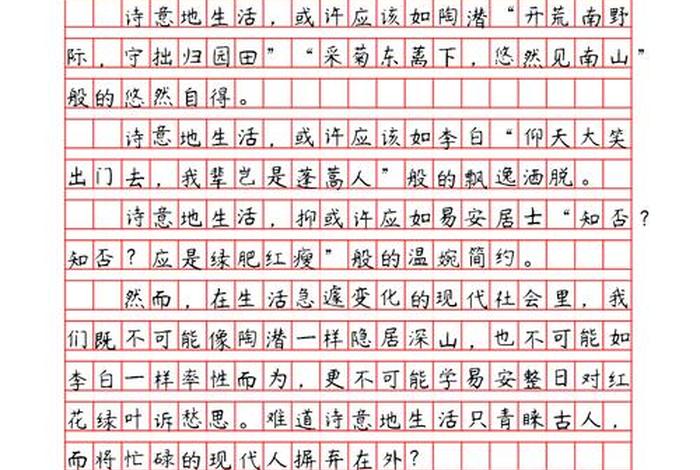 诗意地生活，或许应该如陶潜“开荒南野
际，守拙归园田”“采菊东蓠下，悠然见南山”
般的悠然自得。
诗意地生活，或许应该如李白“仰天大笑
出门去，我辈岂是蓬蒿人”般的飘逸洒脱。
诗意地生活，抑或许应如易安居士“知否？
知否？应是绿肥红瘦”般的温婉简约。
然而，在生活急遽变化的现代社会里，我
们既不可能像陶潜一样隐居深山，也不可能如
李白一样率性而为，更不可能学易安整日对红
花绿叶诉愁思。难道诗意地生活只青睐古人，
而将忙碌的现代人摒弃在外？